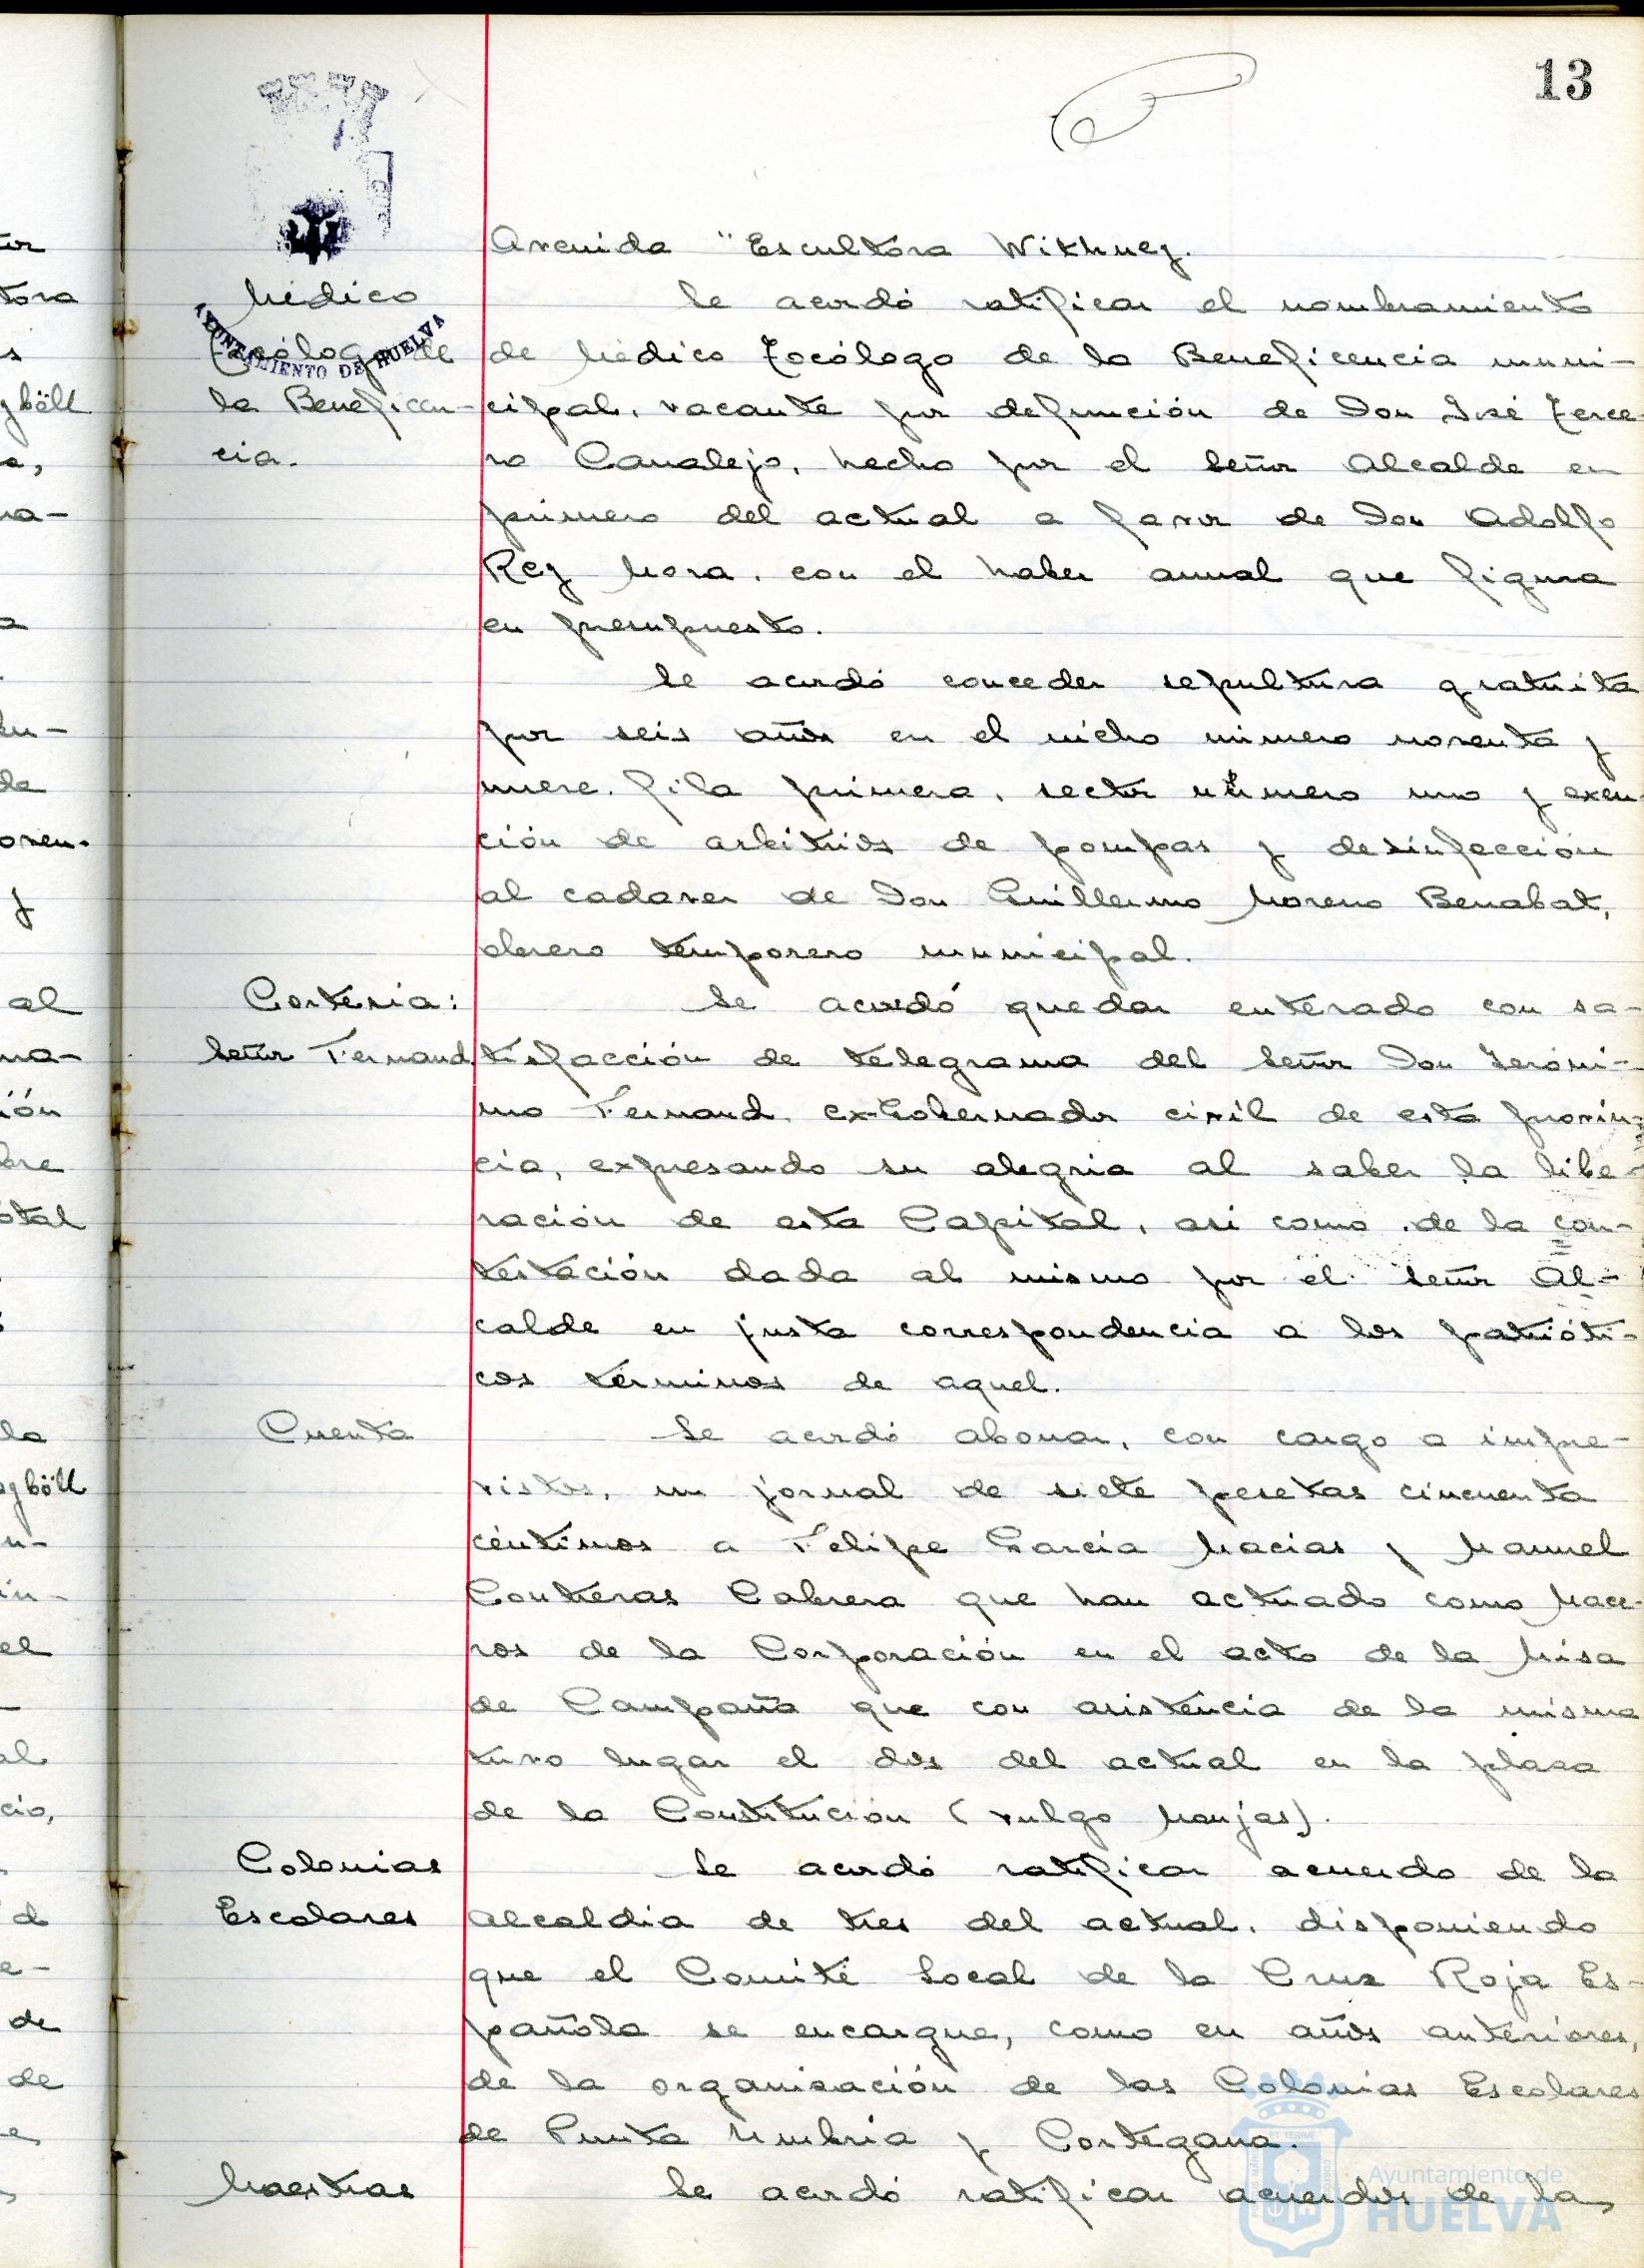 13
Avenida "Escultora Withney.
Médico
Se acordó ratificar el nombramiento
Tocólogo de
AYUNTAMIENTO DE HUELVA
de Médico Tocólogo de la Beneficencia muni-
la Beneficen-
cipal, vacante por defunción de Don José Terce-
cia.
ro Canalejo, hecho por el Señor Alcalde en
primero del actual a favor de Don Adolfo
Rey Mora, con el haber anual que figura
en presupuesto.
Se acordó conceder sepultura gratuita
por seis años en el nicho número noventa y
nueve, fila primera, sector número uno y exen-
ción de arbitrios de pompas y desinfección
al cadaver de Don Guillermo Moreno Benabat,
obrero temporero municipal.
Cortesia:
Se acordó quedar enterado con sa-
Señor Fernaud
tisfacción de telegrama del Señor Don Jeróni-
mo Fernaud, ex-Gobernador civil de esta provin-
cia, expresando su alegria al saber la libe-
ración de esta Capital, asi como de la con-
testación dada al mismo por el Señor Al-
calde en justa correspondencia a los patrióti-
cos términos de aquel.
Cuenta
Se acordó abonar, con cargo a impre-
vistos, un jornal de siete pesetas cincuenta
céntimos a Felipe Garcia Macias y Manuel
Contreras Cabrera que han actuado como Mace-
ros de la Corporación en el acto de la Misa
de Campaña que con asistencia de la misma
tuvo lugar el dos del actual en la plaza
de la Constitución (vulgo Monjas).
Colonias
Se acordó ratificar acuerdo de la
Escolares
Alcaldia de tres del actual, disponiendo
que el Comité Local de la Cruz Roja Es-
pañola se encargue, como en años anteriores,
de la organización de las Colonias Escolares
de Punta Umbria y Cortegana.
Maestras
Se acordó ratificar acuerdos de la
Ayuntamiento de
HUELVA